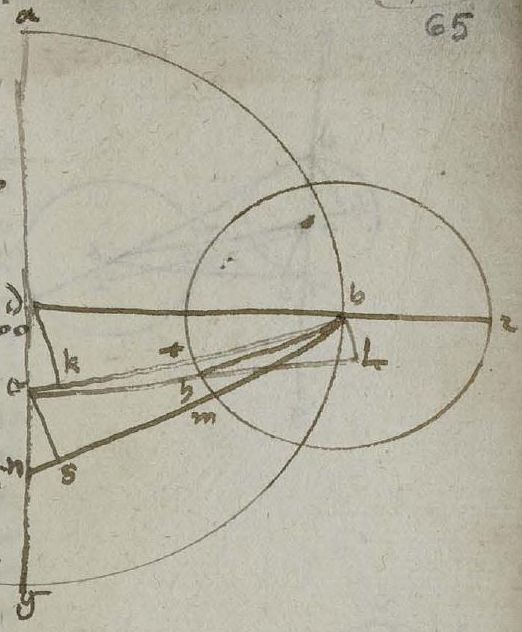 65
a
b
z
k
L
h
m
n
s
g